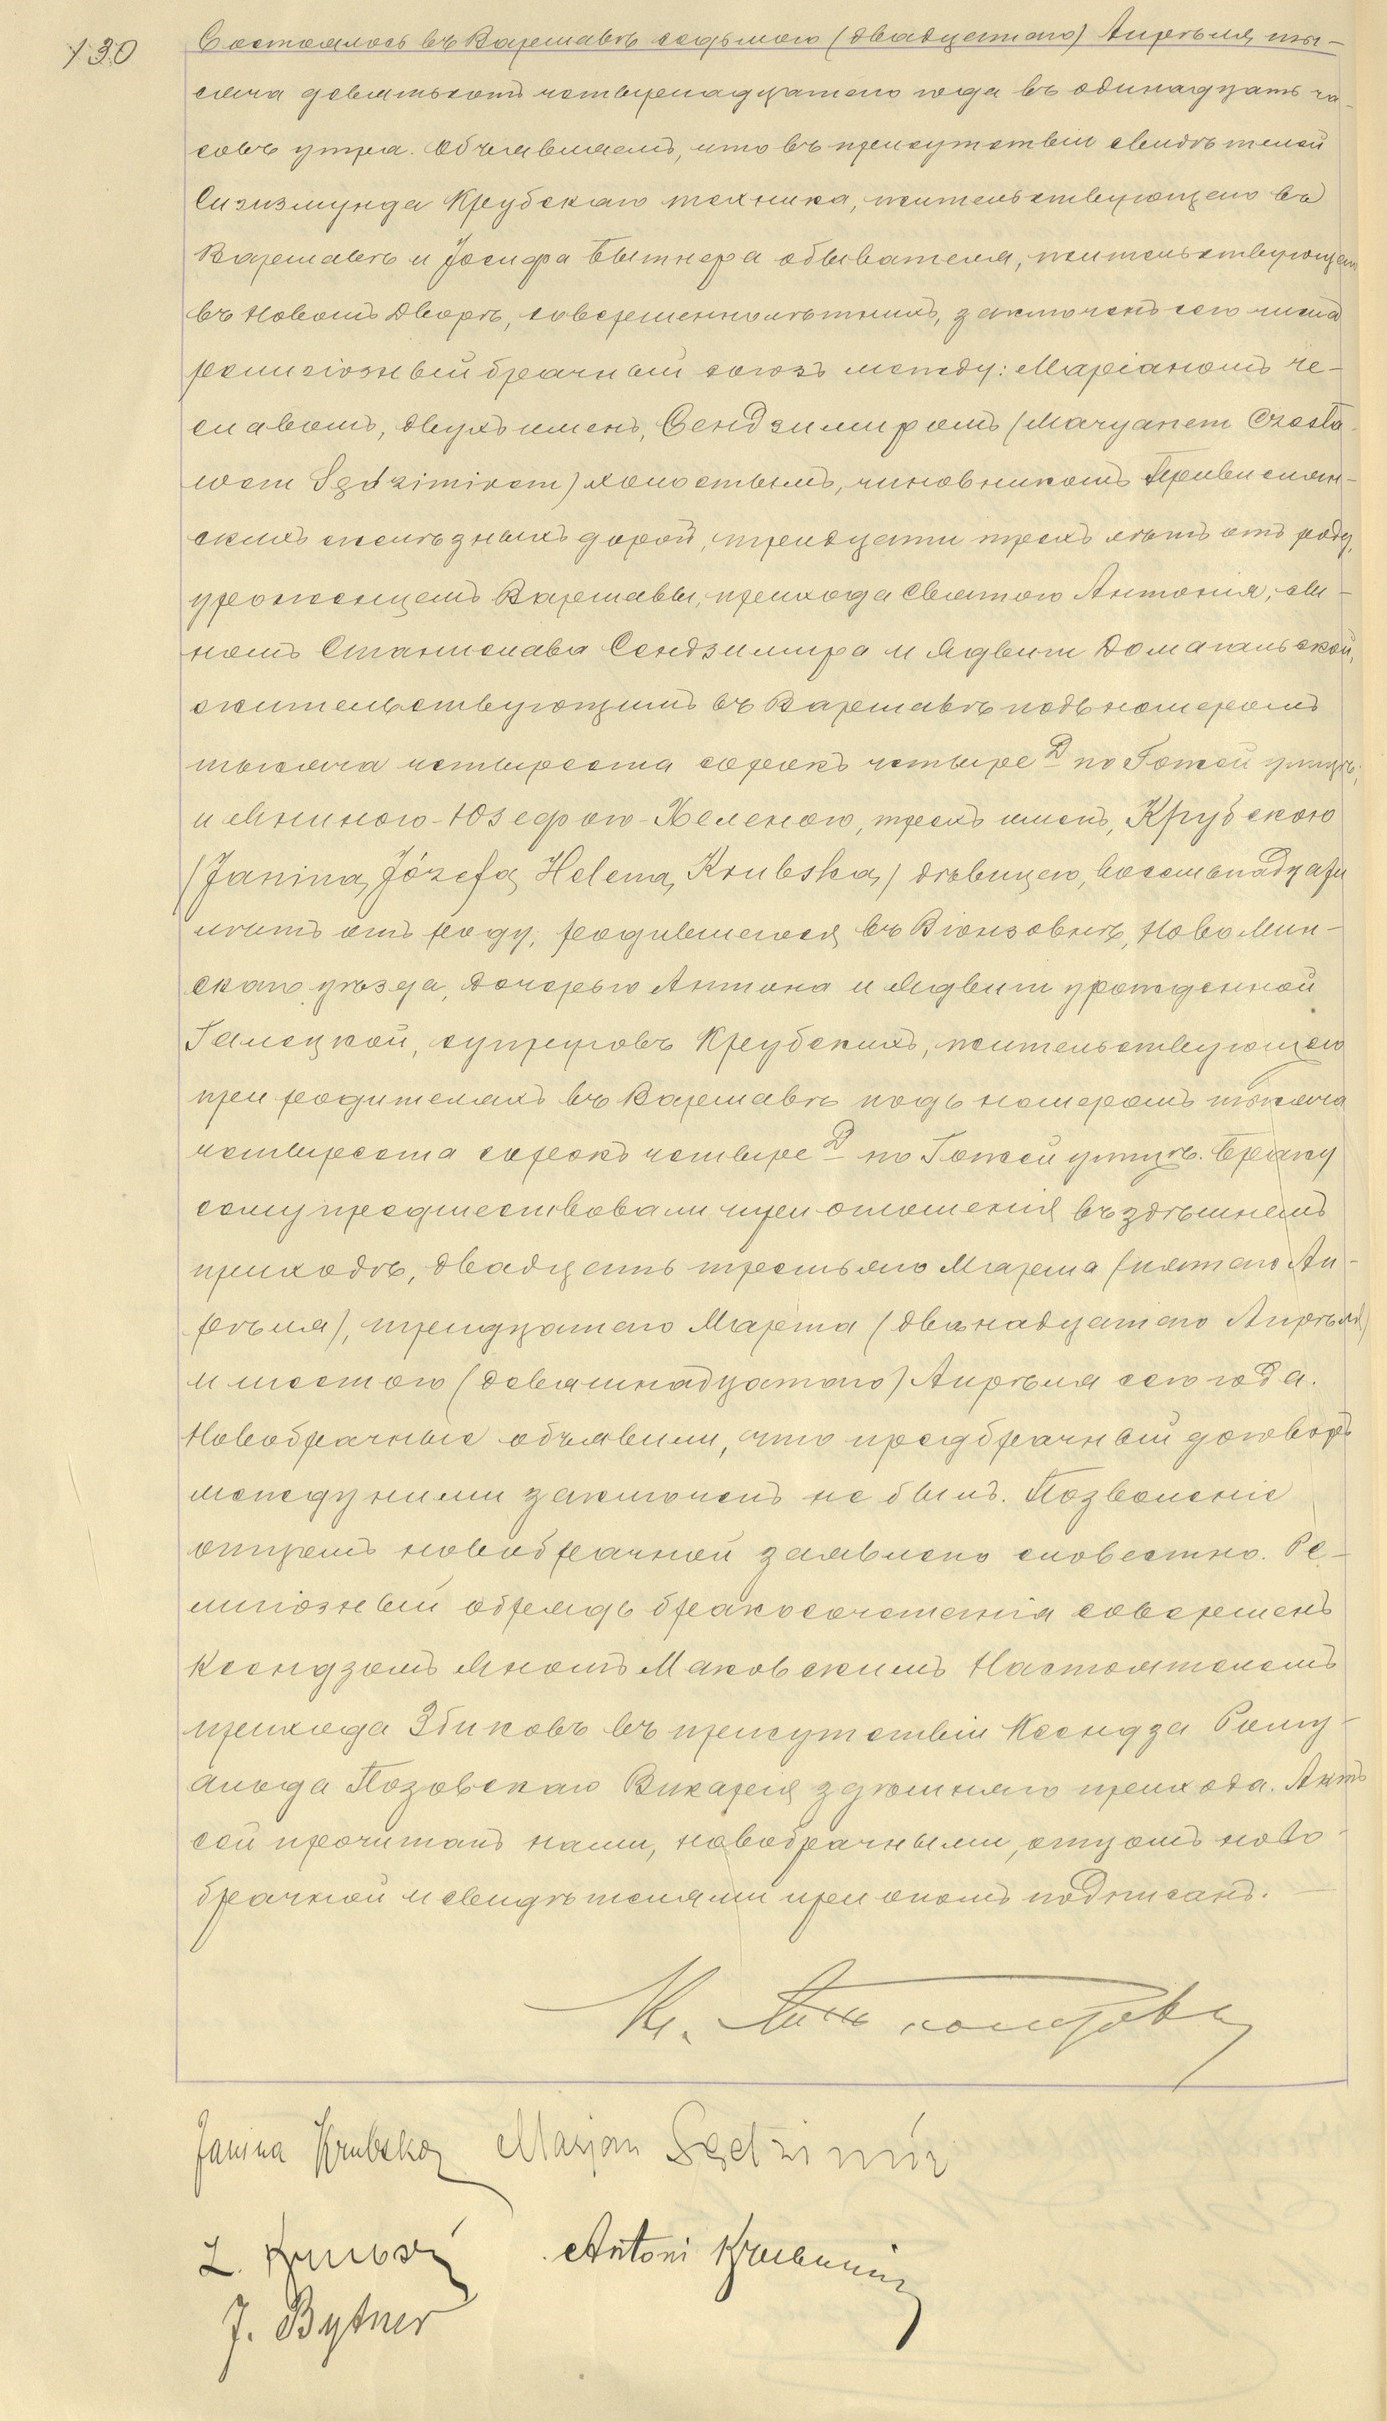 130
Состоялось въ Варшавѣ седьмого (двадцатаго) Апрѣля ты-
сяча девятьсотъ четырнадцатаго года въ одинадцать ча-
совъ утра. Объявляемъ, что въ присутствіи свидѣтелей
Сигизмунда Крубскаго техника, жительствующаго въ
Варшавѣ и Іосифа Бытнера обывателя, жительствующаго
въ Новомъ Дворѣ, совершеннолѣтнихъ, заключенъ сего числа
религіозный брачный союзъ между: Маріаномъ Че-
славомъ, двухъ именъ, Сендзимиромъ (Maryanem Czesła-
wem Sędzimirem) холостымъ, чиновникомъ Привислин-
скихъ желѣзныхъ дорогъ, тридцати трехъ лѣтъ отъ роду,
уроженцемъ Варшавы, прихода Святого Антонія, сы-
номъ Станислава Сендзимира и Ядвиги Домагальской,
жительствующимъ въ Варшавѣ подъ номеромъ
тысяча четыреста сорокъ четыре Д по Гожей улицѣ;
и Яниною-Юзефою-Хеленою, трехъ именъ, Крубскою
(Janiną Józefą Heleną Krubską) дѣвицею, восемьнадцати
лѣтъ отъ роду, родившеюся въ Віонзовнѣ, Ново Мин-
скаго уѣзда, дочерью Антона и Ядвиги урожденной
Галецкой, супруговъ Крубскихъ, жительствующею
при родителяхъ въ Варшавѣ подъ номеромъ тысяча
четыреста сорокъ четыре Д по Гожей улицѣ. Браку
сему предшествовали три оглашенія въ здѣшнемъ
приходѣ, двадцать третьяго Марта (пятаго Ап-
рѣля), тридцатаго Марта (двѣнадцатаго Апрѣля)
и шестого (девятнадцатаго) Апрѣля сего года.
Новобрачные объявили, что предбрачный договоръ
между ними заключенъ не былъ. Позволеніе
отцемъ новобрачной заявлено словестно. Ре-
лигіозный обрядъ бракосочетанія совершенъ
Ксендзомъ Яномъ Маковскимъ Настоятелемъ
прихода Збиковъ въ присутствіи Ксендза Рому-
альда Позовскаго Викарія здѣшняго прихода. Актъ
сей прочитанъ нами, новобрачными, отцомъ ново-
брачной и свидѣтелями при ономъ подписанъ.
Janina Krubska Marjan Sędzimir
Z. Krubski Antoni Krubski
J. Bytner